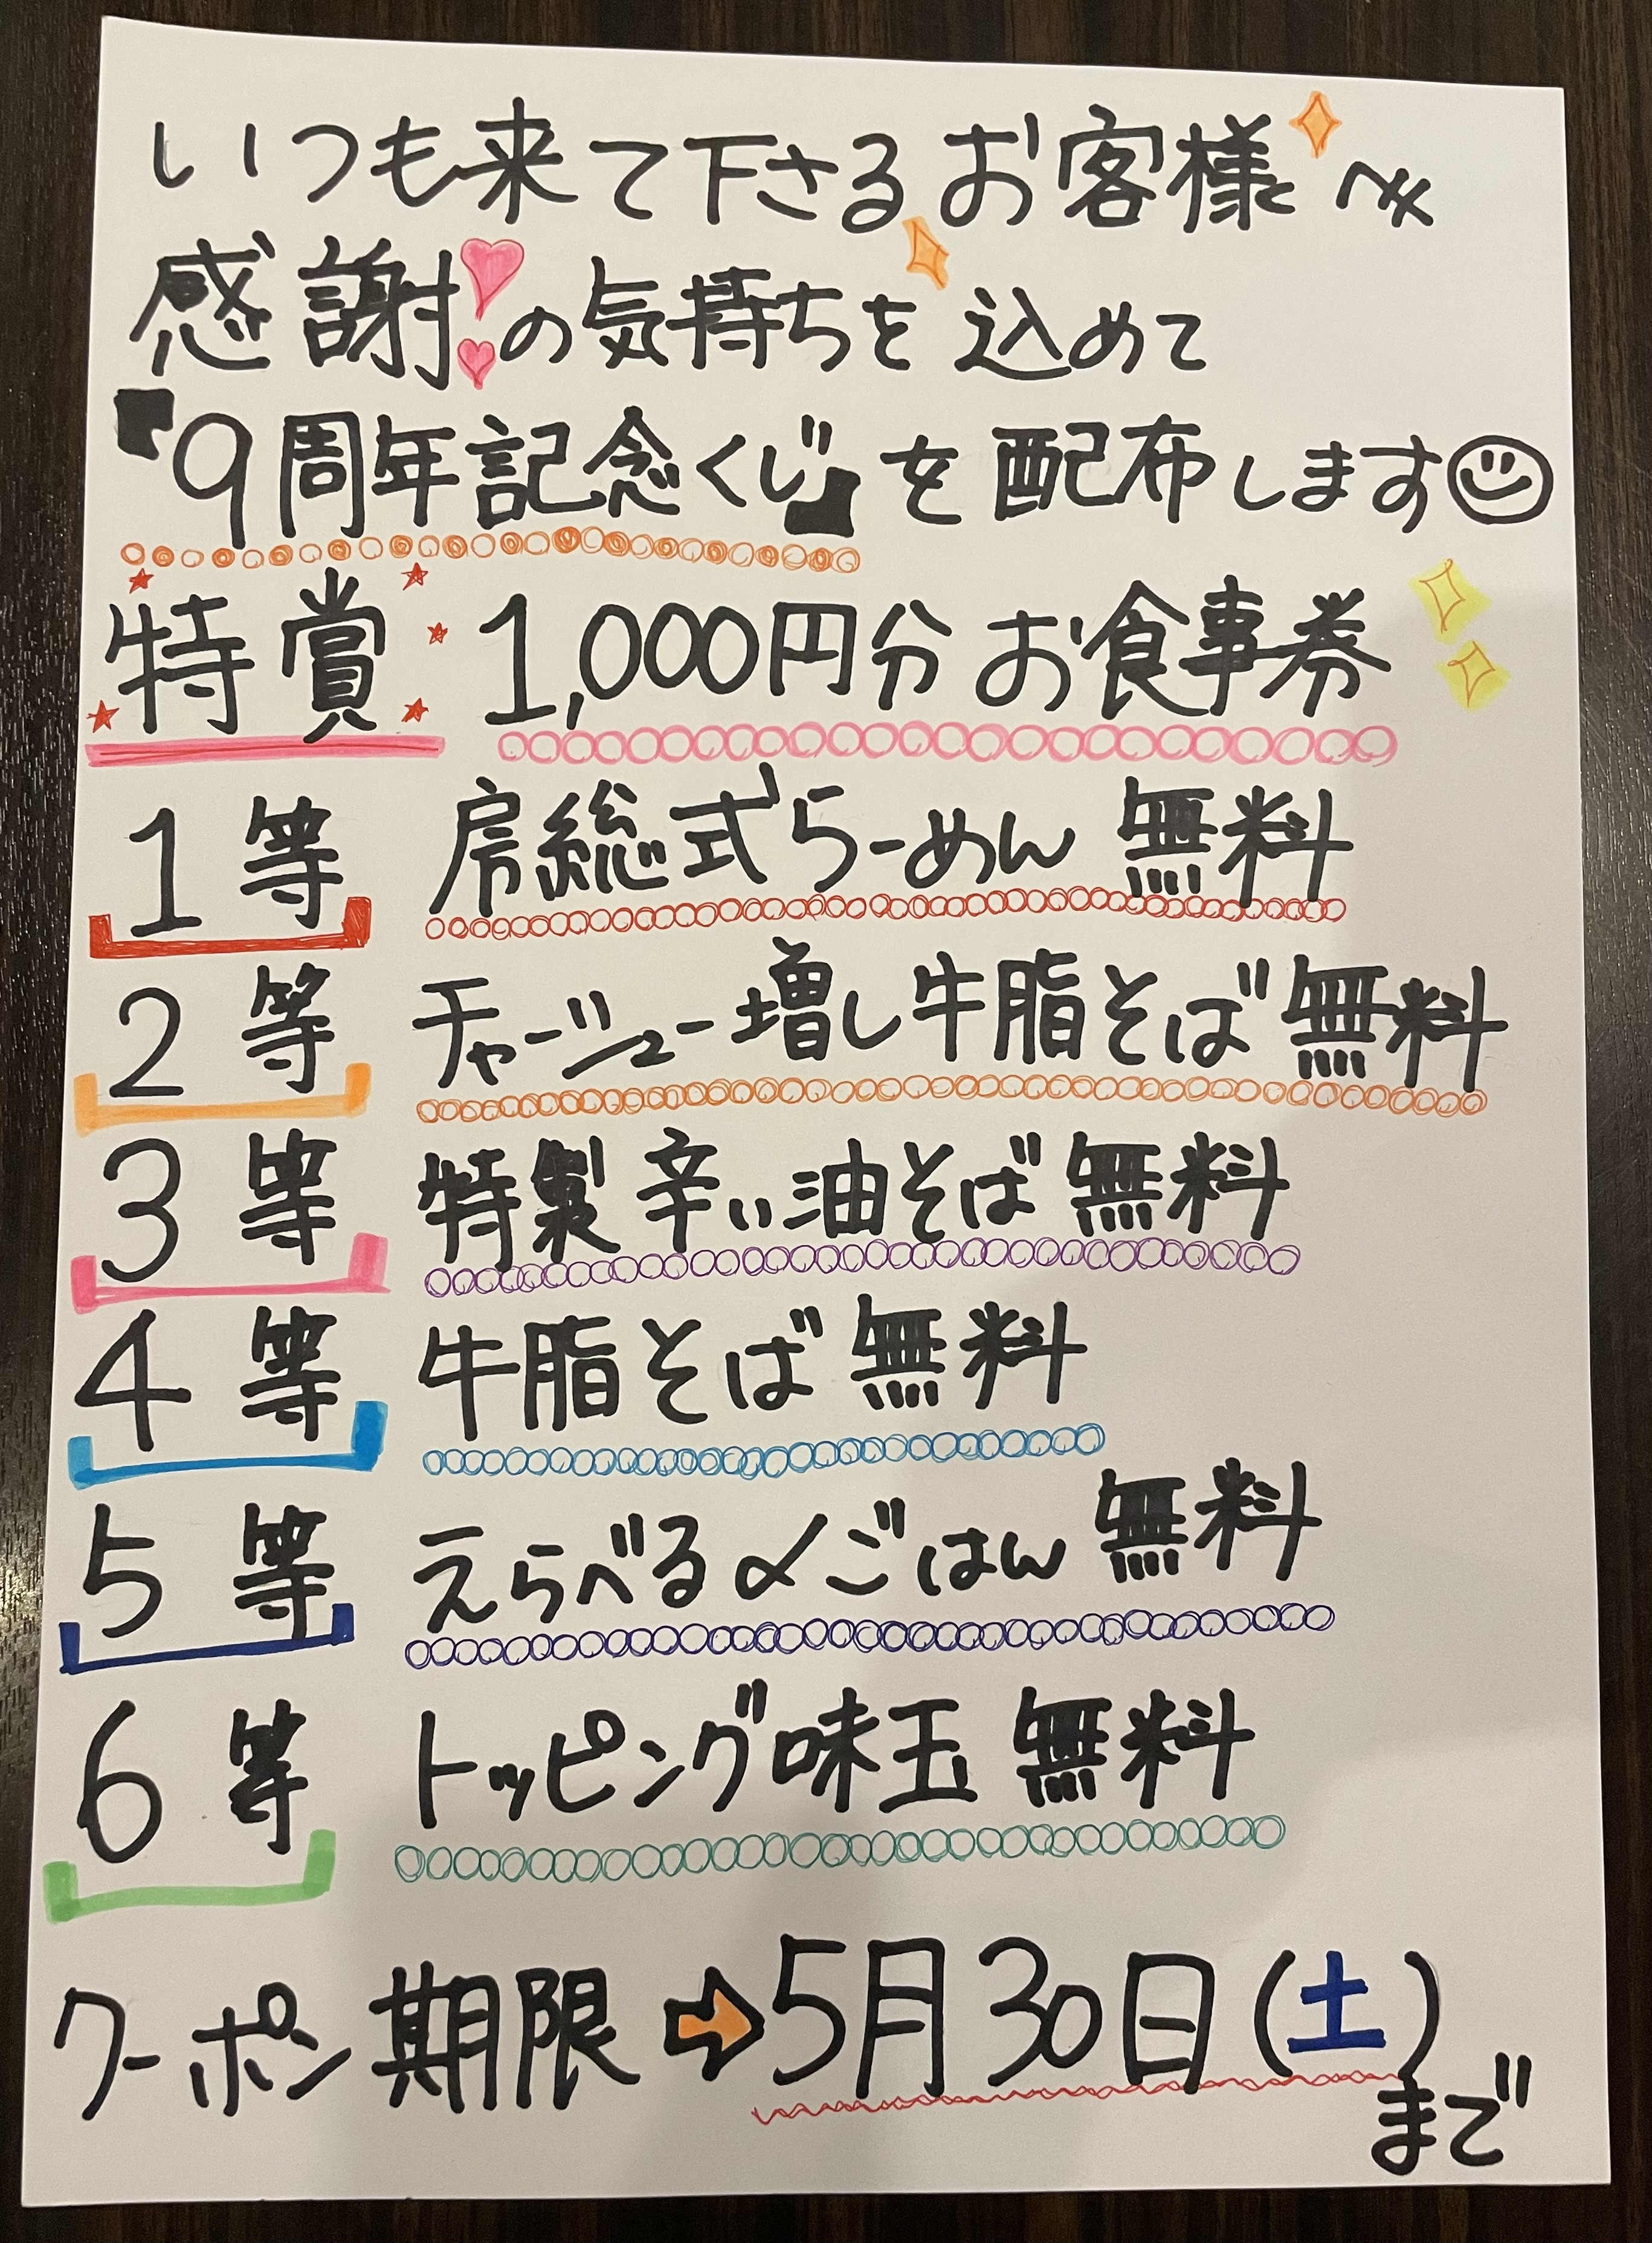 いつも来て下さるお客様へ
感謝の気持ちを込めて
『9周年記念くじ』を配布します
特賞 1,000円分お食事券
1等 房総式らーめん 無料
2等 チャーシュー増し牛脂そば 無料
3等 特製辛い油そば 無料
4等 牛脂そば 無料
5等 えらべる〆ごはん 無料
6等 トッピング味玉 無料
クーポン期限 ➡ 5月30日(土)
まで